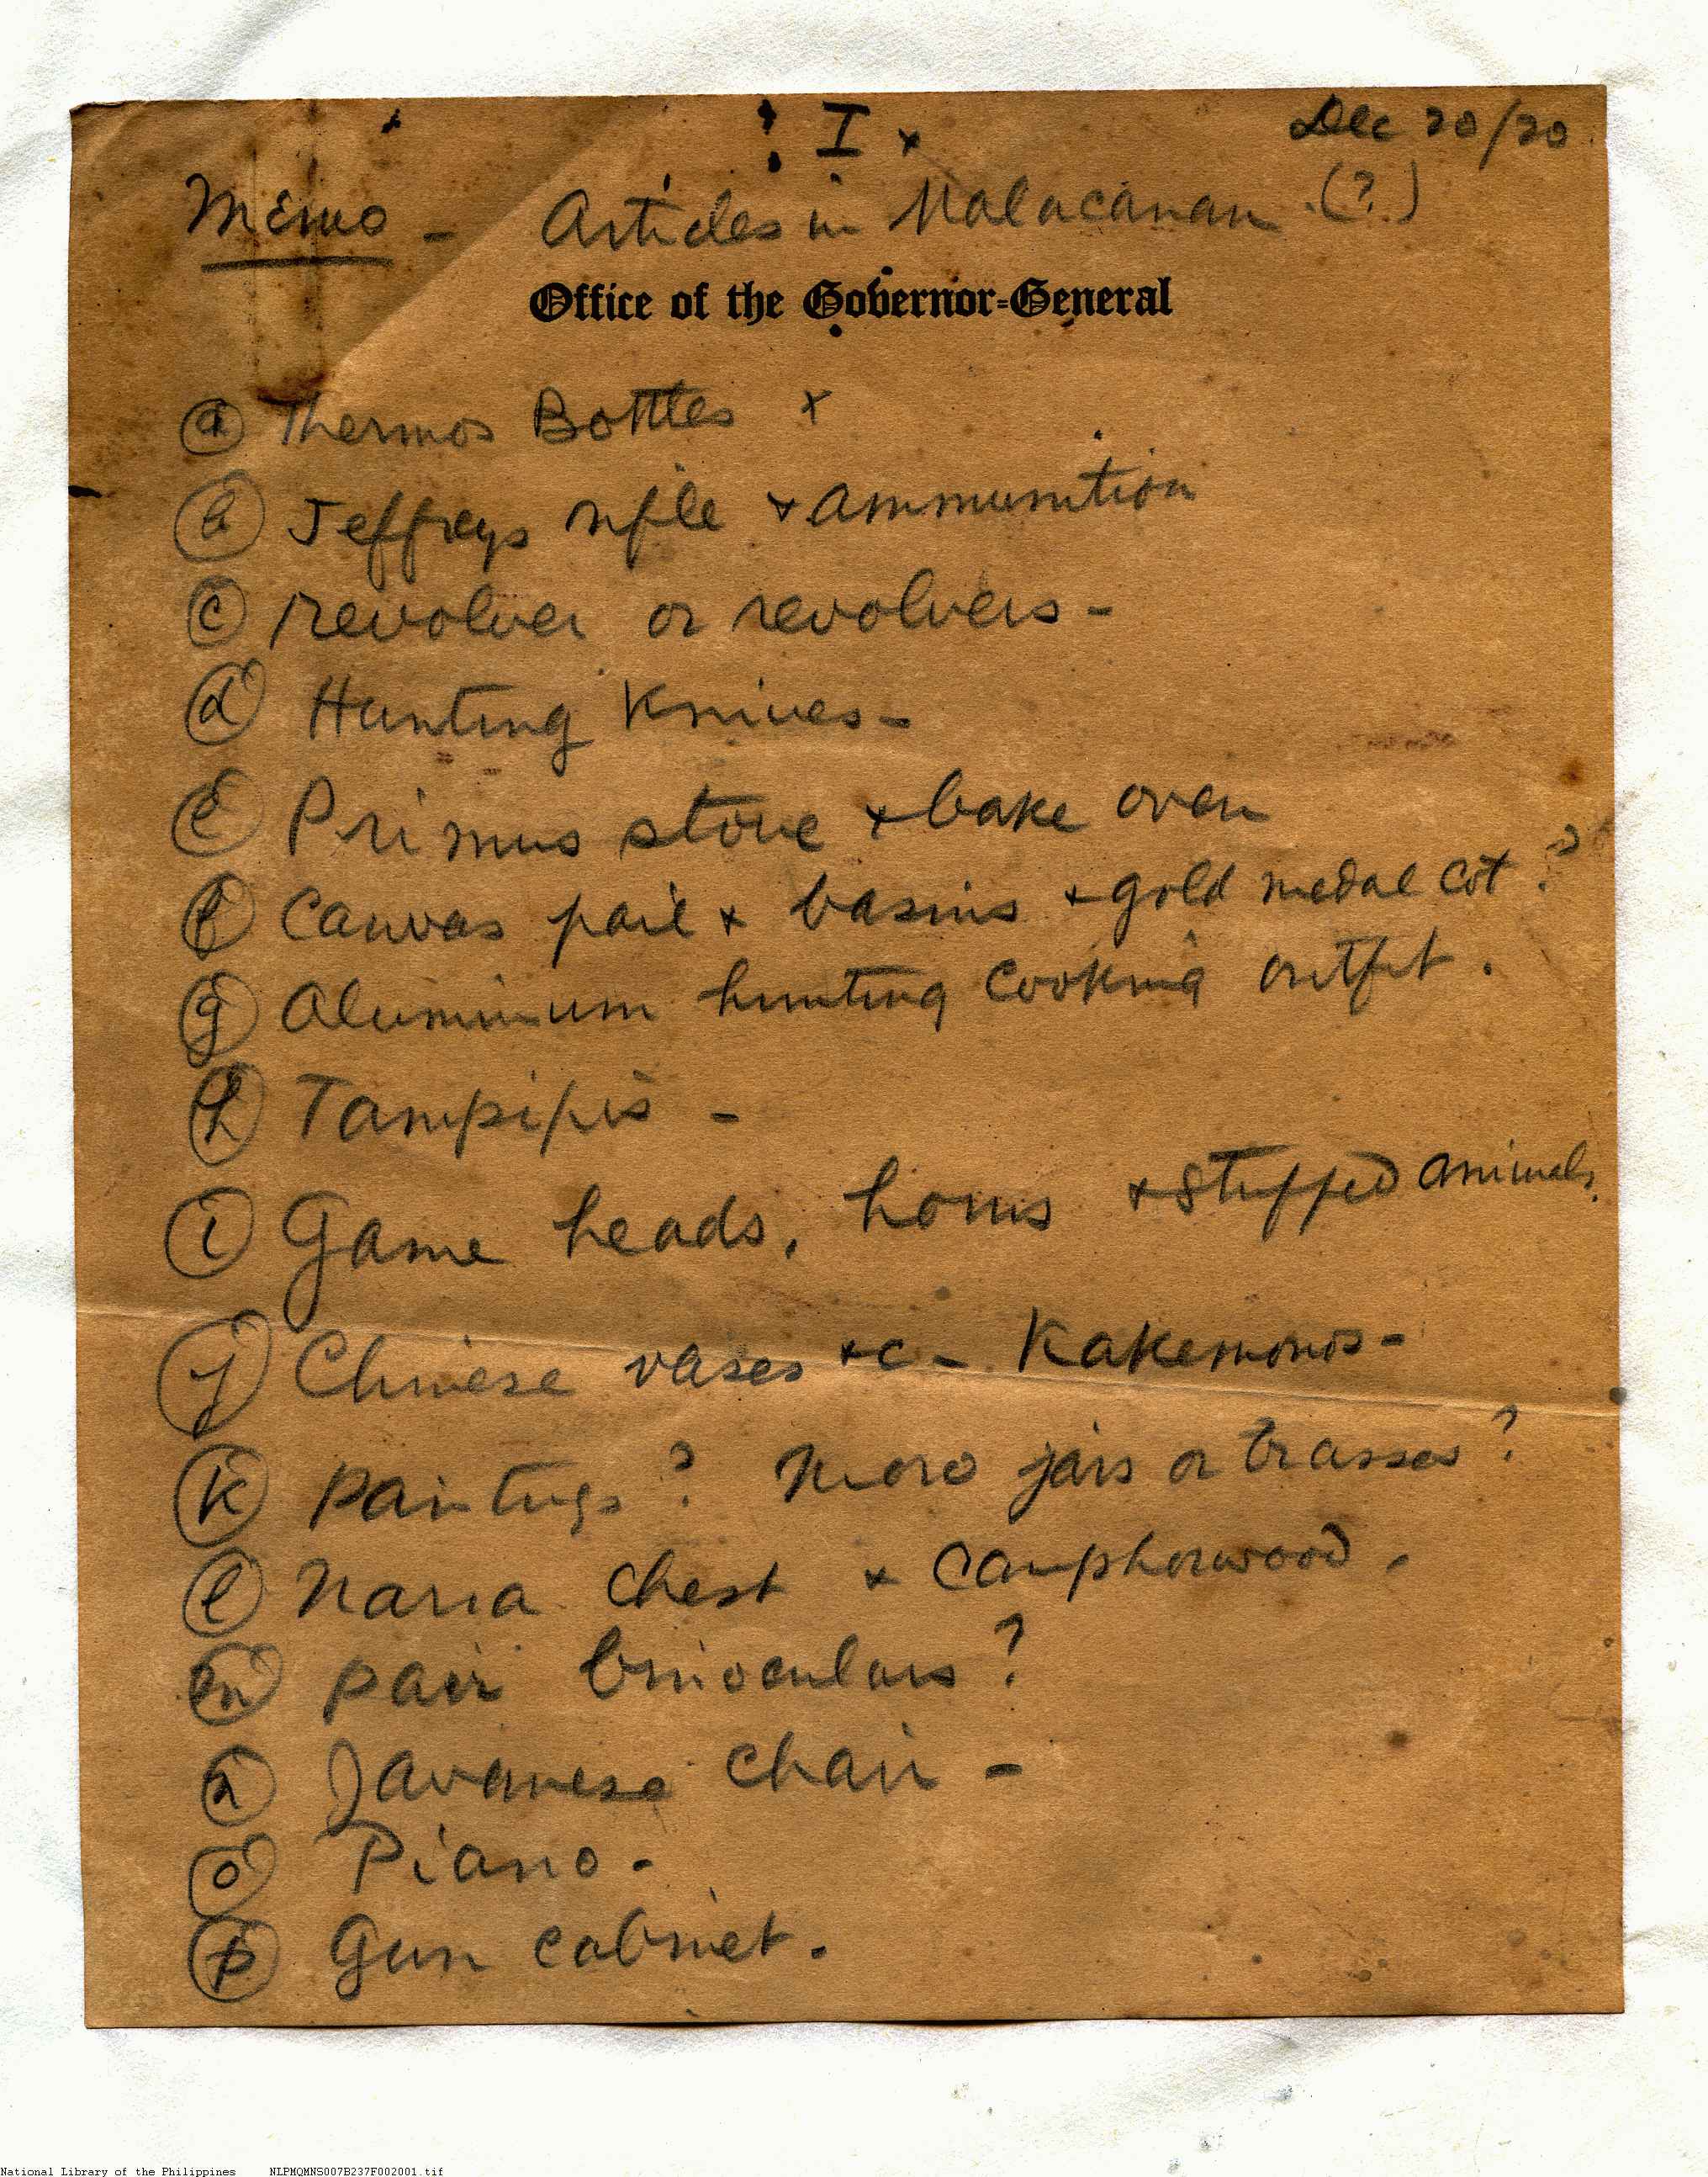 I x
Dec 20/20
Memo - Articles in Malacanan (?)
Office of the Governor-General
(a) Thermos Bottles x
(b) Jeffreys rifle + ammunition
(c) revolver or revolvers -
(d) Hunting Knives -
(e) Primus stove + bake oven
(f) Canvas pail + basins + gold medal cot ?
(g) Aluminum hunting cooking outfit .
(h) Tampipis -
(i) Game heads, horns + stuffed animals.
(j) Chinese vases +c - Kakemonos -
(k) Paintings ? Moro jars or brasses ?
(l) Narra chest + camphorwood .
(m) pair binoculars ?
(n) Javanese chair -
(o) Piano -
(p) Gun cabinet .
National Library of the Philippines NLPMQMNS007B237F002001.tif